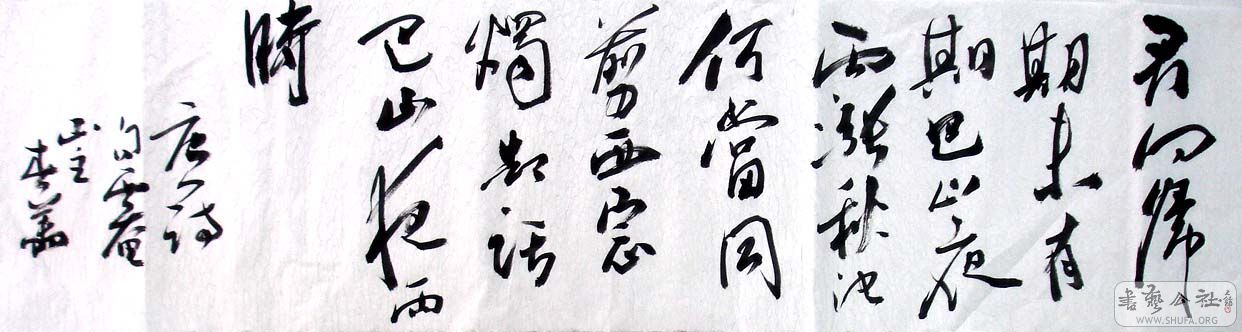 君问歸
期未有
期巴山夜
雨漲秋池
何當同
剪西窓
燭却話
巴山夜雨
時
唐詩
白雲庵
書藝公社
WWW.SHUFA.ORG